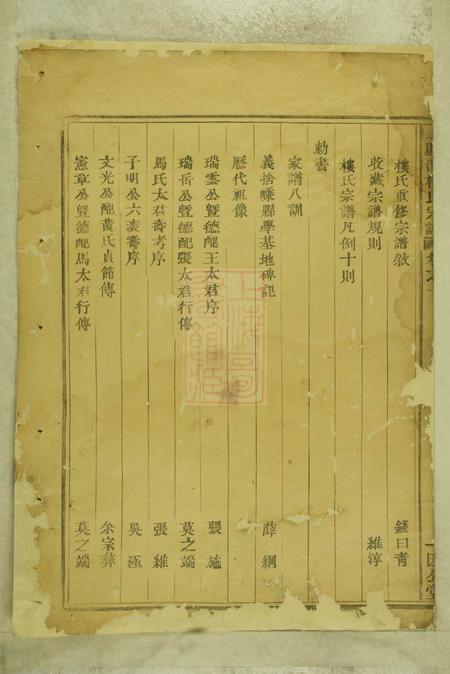 樓氏重修宗譜敘 錢日青
收藏宗譜規則 維淳
樓氏宗譜凡例十則
勅書
家譜八訓
義捨嵊縣學基地碑記 薛綱
歷代祖像
瑞雲公暨德配王太君序 張施
瑞岳公暨德配張太君行傳 莫之端
馬氏太君壽考序 張維
子明公六袠壽序 吳
文光公配黃氏貞節傳 余宗彝
憲章公暨德配馬太君行傳 莫之端